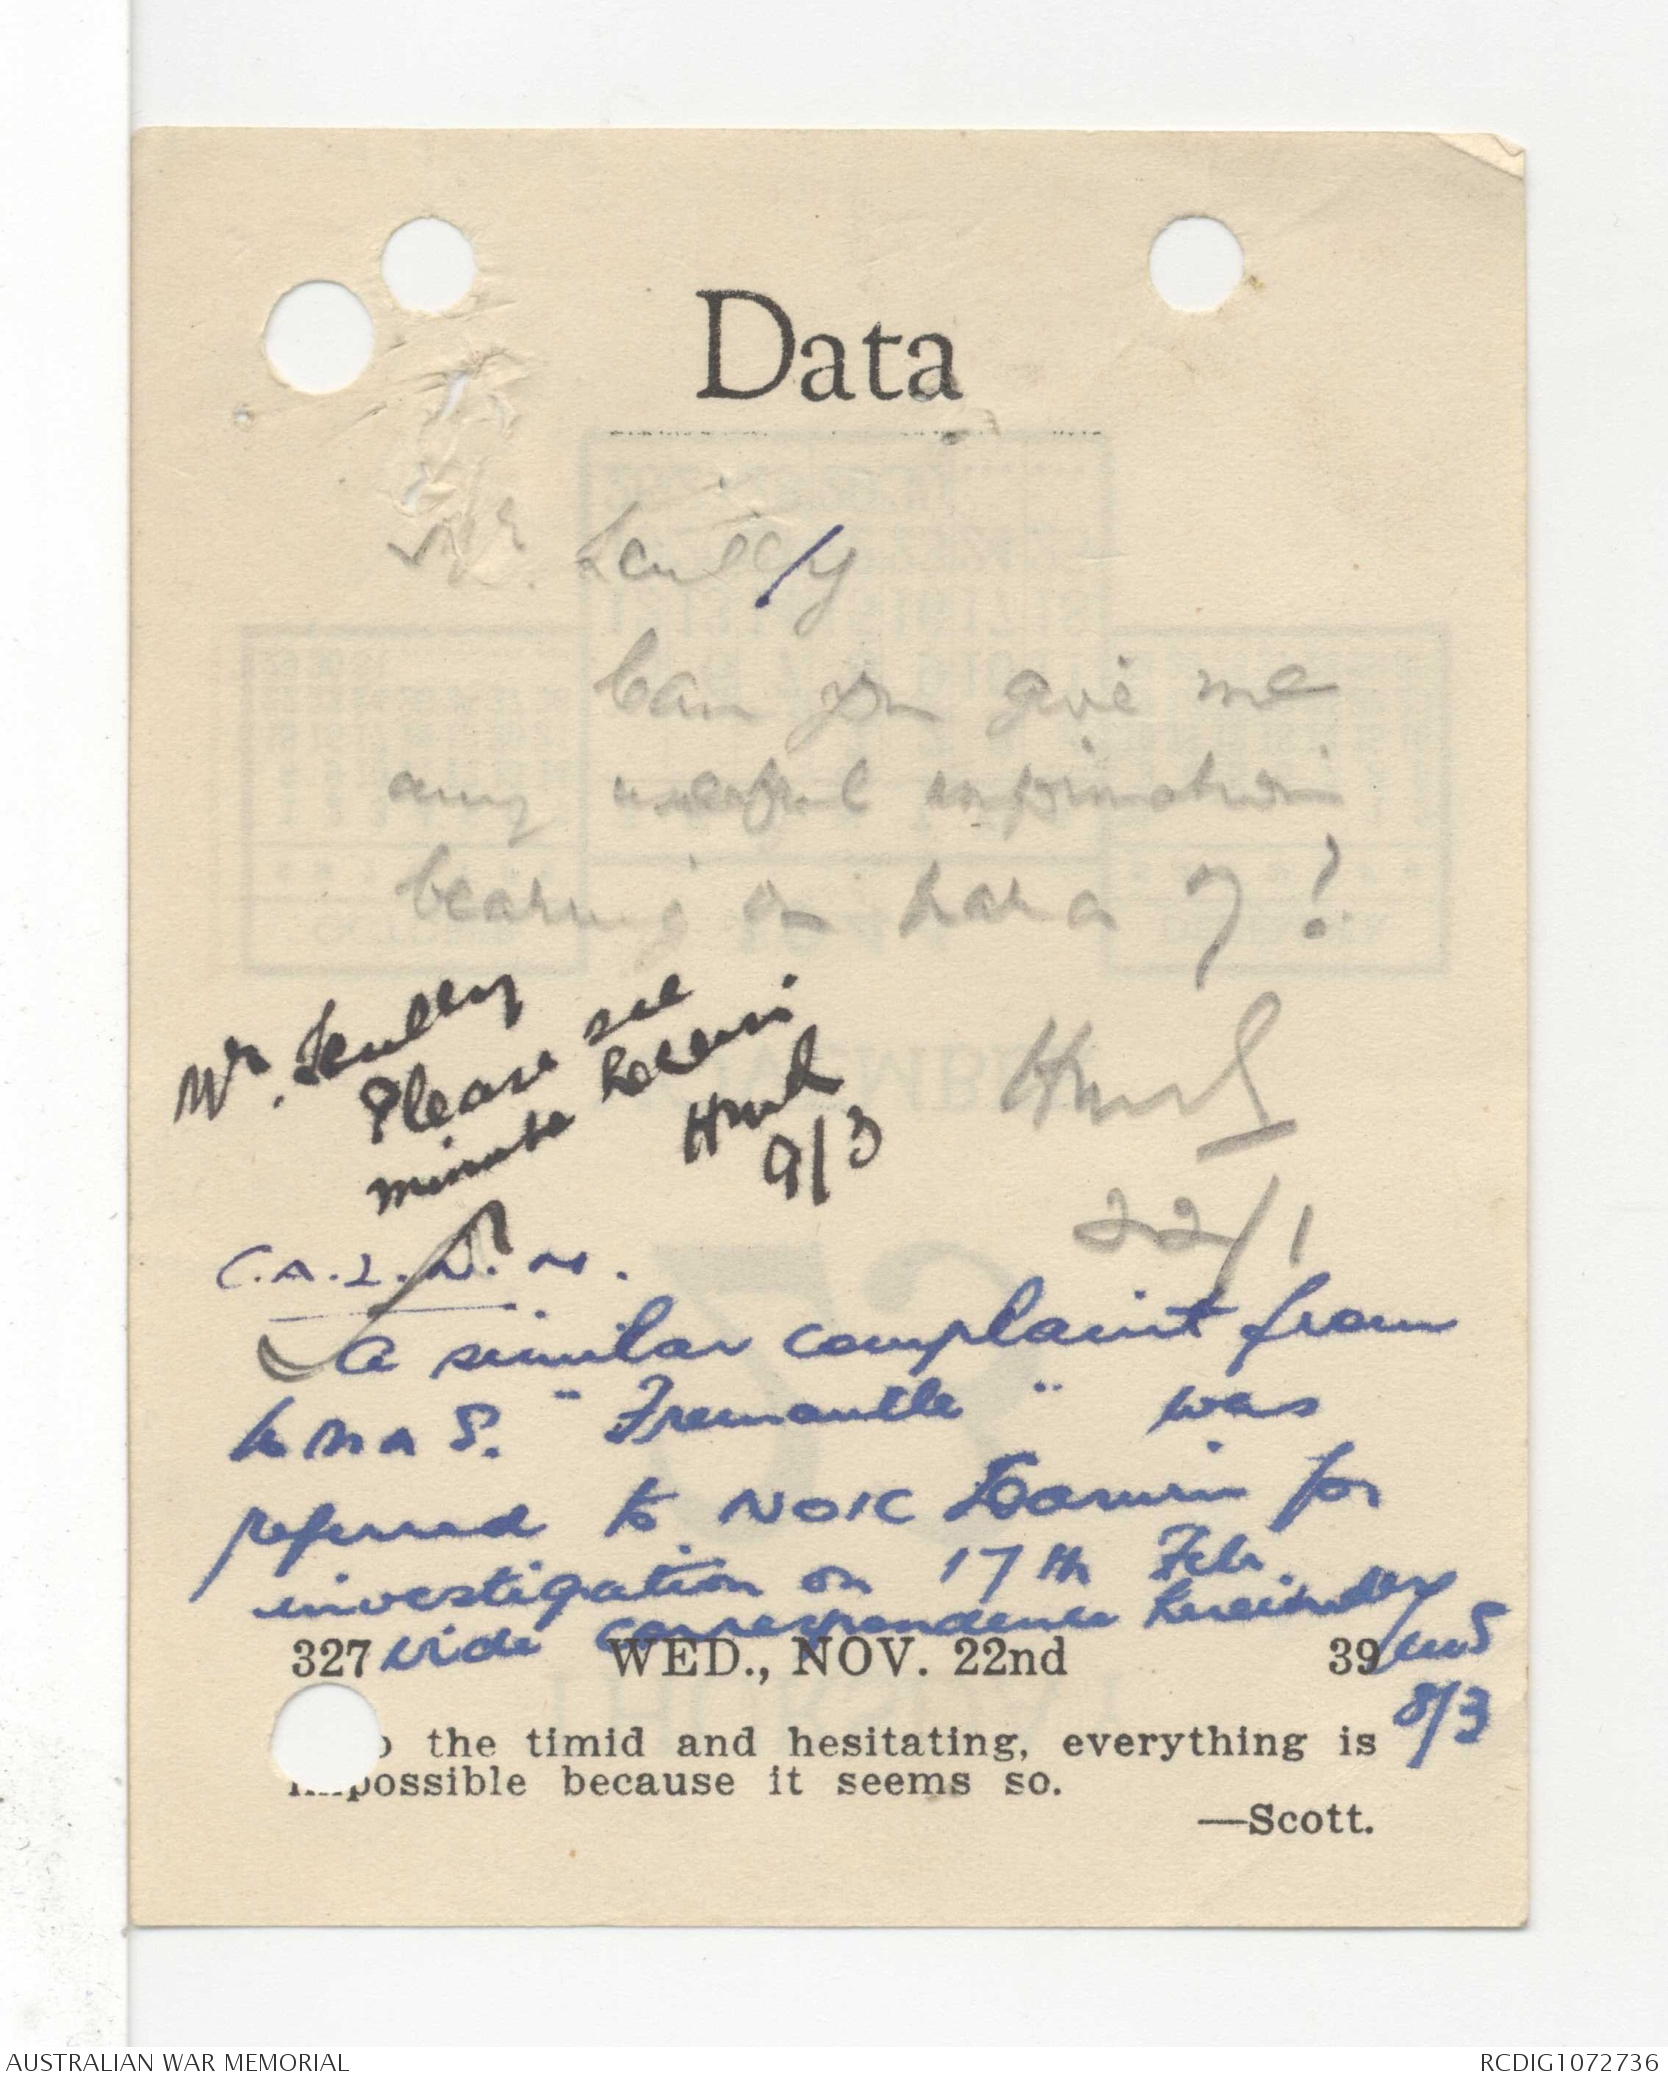 Data
Mr. Scully
Can you give me
any useful information
bearing on para 7?
22/1
Mr. Scully
Please see
minute herein
9/3
C.A.2.D.N.
A similar complaint from
HMAS. "Fremantle" was
referred to NOIC Darwin for
investigation on 17th Feb.
vide correspondence hereunder
8/3
327 WED., NOV. 22nd 39
the timid and hesitating, everything is
impossible because it seems so.
—Scott.
AUSTRALIAN WAR MEMORIAL
RCDIG1072736